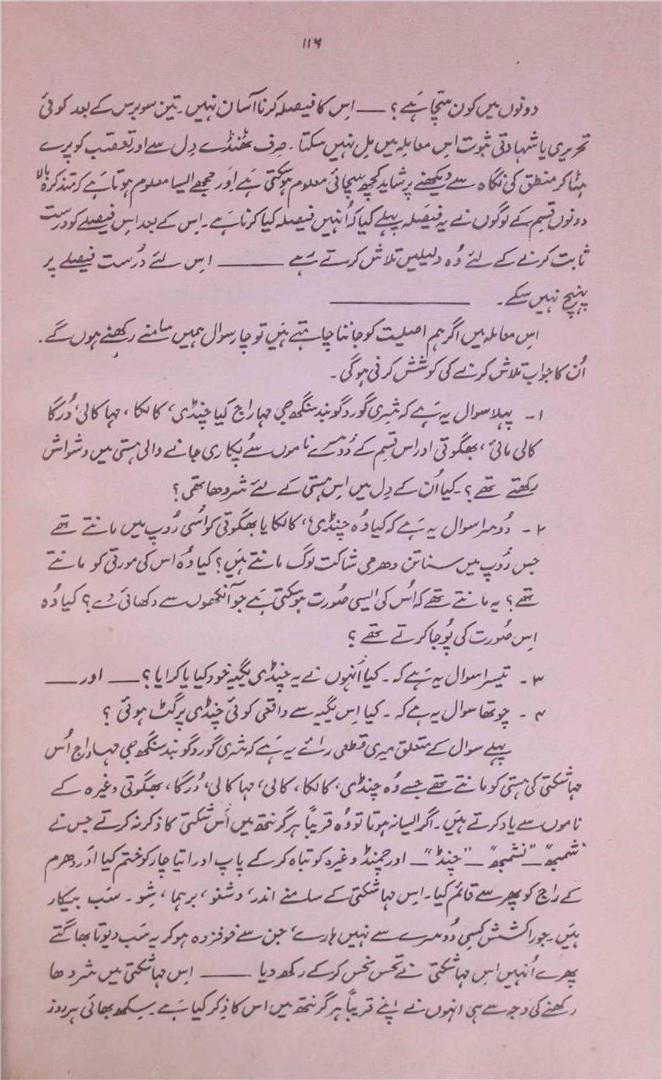 ۱۱۶
دونوں میں کون سچا ہے؟ ـــــ اس کا فیصلہ کرنا آسان نہیں۔ تین سو برس کے بعد کوئی
تحریری یا شہادتی ثبوت اس معاملہ میں مل نہیں سکتا۔ صرف ٹھنڈے دل سے اور تعصب کو پرے
ہٹا کر منطق کی نگاہ سے دیکھنے پر شاید کچھ سچائی معلوم ہو سکتی ہے اور مجھے ایسا معلوم ہوتا ہے کہ تذکرہ بالا
دونوں قسم کے لوگوں نے یہ فیصلہ پہلے کیا کہ اُنہیں فیصلہ کیا کرنا ہے۔ اس کے بعد اس فیصلے کو درست
ثابت کرنے کے لئے وُہ دلیلیں تلاش کرتے رہے ـــــــــ اس لئے دُرست فیصلے پر
پہنچ نہیں سکے۔ ــــــــــــــــ
اس معاملہ میں اگر ہم اصلیت کو جاننا چاہتے ہیں تو چار سوال ہمیں سامنے رکھنے ہوں گے۔
اُن کا جواب تلاش کرنے کی کوشش کرنی ہو گی۔
۱۔ پہلا سوال یہ ہے کہ شری گورو گوبند سنگھ جی مہاراج کیا چنڈی، کالکا، مہا کالی، دُرگا
کالی مائی، بھگوتی اور اس قسم کے دُوسرے ناموں سے پکاری جانے والی ہستی میں وشواش
رکھتے تھے؟ ۔ کیا اُن کے دِل میں اس ہستی کے لئے شردھا تھی؟
۲۔ دُوسرا سوال یہ ہے کہ کیا وُہ چنڈی، کالکا یا بھگوتی کو اُسی رُوپ میں مانتے تھے
جس رُوپ میں سناتن دھرمی شاکت لوگ مانتے ہیں؟ کیا وُہ اس کی مورتی کو مانتے
تھے؟ یہ مانتے تھے کہ اُس کی ایسی صورت ہو سکتی ہے جو آنکھوں سے دکھائی دے؟ کیا وُہ
اس صورت کی پُوجا کرتے تھے؟
۳۔ تیسرا سوال یہ ہے کہ ۔ کیا اُنہوں نے یہ چنڈی یگیہ خود کیا یا کرایا؟ ـــــ اور ــــــ
۴۔ چوتھا سوال یہ ہے کہ ۔ کیا اس یگیہ سے واقعی کوئی چنڈی پرگٹ ہوئی؟
پہلے سوال کے متعلق میری قطعی رائے یہ ہے کہ شری گورو گوبند سنگھ جی مہاراج اُس
مہاشکتی کی ہستی کو مانتے تھے جسے وُہ چنڈی، کالکا، کالی، مہا کالی، دُرگا، بھگوتی وغیرہ کے
ناموں سے یاد کرتے ہیں۔ اگر ایسا نہ ہوتا تو وُہ قریباً ہر گرنتھ میں اُس شکتی کا ذکر نہ کرتے جس نے
"شمبھ" ــ "نشمبھ" ــ "چنڈ" ــ اور چمنڈ وغیرہ کو تباہ کر کے پاپ اور اتیاچار کو ختم کیا اور دھرم
کے راج کو پھر سے قائم کیا۔ اس مہاشکتی کے سامنے اندر، وشنو، برہما، شو۔ سب بیکار
ہیں۔ جو راکشش کسی دُوسرے سے نہیں ہارے، جن سے خوفزدہ ہو کر یہ سب دیوتا بھاگتے
پھرے اُنہیں اس مہاشکتی نے تحس نحس کر کے رکھ دیا ــــــــ اس مہاشکتی میں شردھا
رکھنے کی وجہ سے ہی انہوں نے اپنے قریباً ہر گرنتھ میں اس کا ذِکر کیا ہے۔ سِکھ بھائی ہر روز